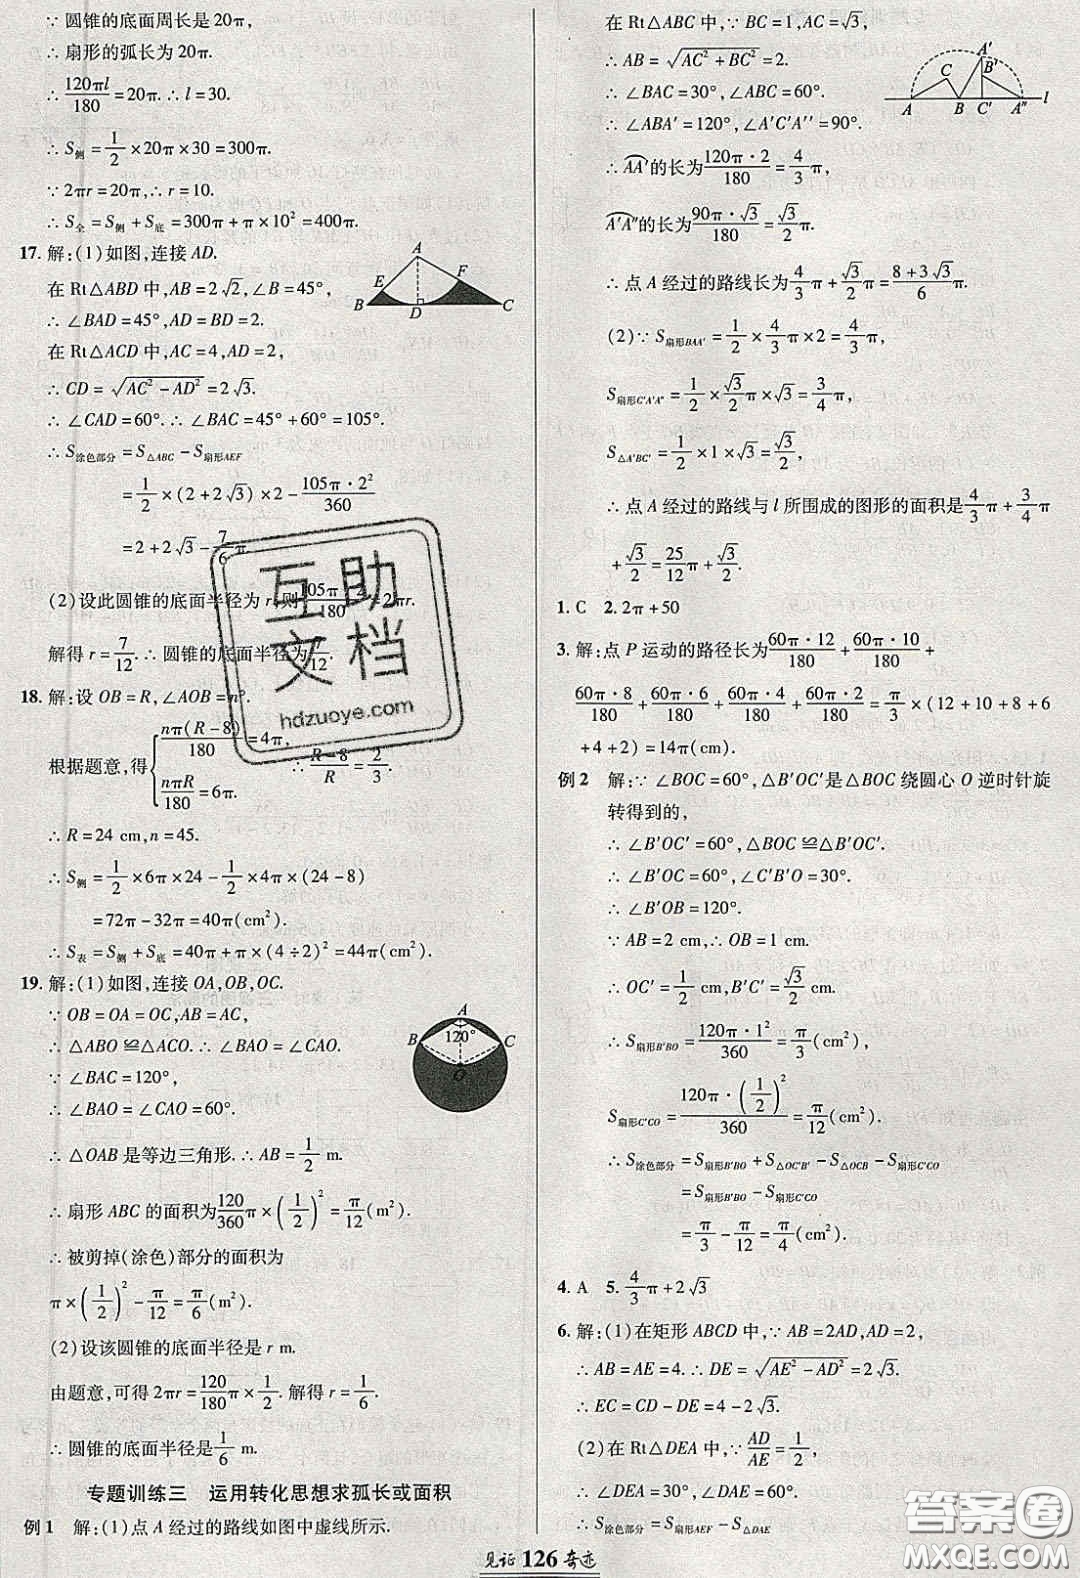 ∵ 圆锥的底面周长是 20π,
∴ 扇形的弧长为 20π.
∴ 120πl/180 = 20π. ∴ l = 30.
∴ S侧 = 1/2 × 20π × 30 = 300π.
∵ 2πr = 20π, ∴ r = 10.
∴ S全 = S侧 + S底 = 300π + π × 10² = 400π.
17. 解:(1)如图,连接 AD.
在 Rt△ABD 中,AB = 2√2, ∠B = 45°,
∴ ∠BAD = 45°, AD = BD = 2.
在 Rt△ACD 中,AC = 4, AD = 2,
∴ CD = √(AC² − AD²) = 2√3.
∴ ∠CAD = 60°. ∴ ∠BAC = 45° + 60° = 105°.
∴ S涂色部分 = S△ABC − S扇形AEF
= 1/2 × (2 + 2√3) × 2 − 105π · 2²/360
= 2 + 2√3 − 7/6 π.
(2)设此圆锥的底面半径为 r,则 105π · 2/180 = 2πr.
解得 r = 7/12. ∴ 圆锥的底面半径为 7/12.
18. 解:设 OB = R, ∠AOB = n°.
根据题意,得 { nπ(R − 8)/180 = 4π, nπR/180 = 6π. ∴ R − 8/R = 2/3.
∴ R = 24 cm, n = 45.
∴ S侧 = 1/2 × 6π × 24 − 1/2 × 4π × (24 − 8)
= 72π − 32π = 40π(cm²).
∴ S表 = S侧 + S底 = 40π + π × (4 ÷ 2)² = 44π(cm²).
19. 解:(1)如图,连接 OA, OB, OC.
∵ OB = OA = OC, AB = AC,
∴ △ABO ≌ △ACO. ∴ ∠BAO = ∠CAO.
∵ ∠BAC = 120°,
∴ ∠BAO = ∠CAO = 60°.
∴ △OAB 是等边三角形. ∴ AB = 1/2 m.
∴ 扇形 ABC 的面积为 120/360 π × (1/2)² = π/12 (m²).
∴ 被剪掉(涂色)部分的面积为
π × (1/2)² − π/12 = π/6 (m²).
(2)设该圆锥的底面半径是 r m.
由题意,可得 2πr = 120/180 π × 1/2. 解得 r = 1/6.
∴ 圆锥的底面半径是 1/6 m.
专题训练三 运用转化思想求弧长或面积
例 1 解:(1)点 A 经过的路线如图中虚线所示.
在 Rt△ABC 中, ∵ BC = 1, AC = √3,
∴ AB = √(AC² + BC²) = 2.
∴ ∠BAC = 30°, ∠ABC = 60°.
∴ ∠ABA′ = 120°, ∠A′C′A″ = 90°.
∴ AA′ 的长为 120π · 2/180 = 4/3 π,
A′A″ 的长为 90π · √3/180 = √3/2 π.
∴ 点 A 经过的路线长为 4/3 π + √3/2 π = 8 + 3√3/6 π.
(2)∵ S扇形BAA′ = 1/2 × 4/3 π × 2 = 4/3 π,
S扇形C′A′A″ = 1/2 × √3/2 π × √3 = 3/4 π,
S△A′BC′ = 1/2 × 1 × √3 = √3/2,
∴ 点 A 经过的路线与 l 所围成的图形的面积是 4/3 π + 3/4 π
+ √3/2 = 25/12 π + √3/2.
1. C 2. 2π + 50
3. 解:点 P 运动的路径长为 60π · 12/180 + 60π · 10/180 +
60π · 8/180 + 60π · 6/180 + 60π · 4/180 + 60π · 2/180 = π/3 × (12 + 10 + 8 + 6
+ 4 + 2) = 14π(cm).
例 2 解: ∵ ∠BOC = 60°, △B′OC′ 是 △BOC 绕圆心 O 逆时针旋
转得到的,
∴ ∠B′OC′ = 60°, △BOC ≌ △B′OC′.
∴ ∠B′OC = 60°, ∠C′B′O = 30°.
∴ ∠B′OB = 120°.
∵ AB = 2 cm, ∴ OB = 1 cm.
∴ OC′ = 1/2 cm, B′C′ = √3/2 cm.
∴ S扇形B′BO = 120π · 1²/360 = π/3 (cm²),
S扇形C′CO = 120π · (1/2)²/360 = π/12 (cm²).
∴ S涂色部分 = S扇形B′BO + S△OC′B′ − S△OCB − S扇形C′CO
= S扇形B′BO − S扇形C′CO
= π/3 − π/12 = π/4 (cm²).
4. A 5. 4/3 π + 2√3
6. 解:(1)在矩形 ABCD 中, ∵ AB = 2AD, AD = 2,
∴ AB = AE = 4. ∴ DE = √(AE² − AD²) = 2√3.
∴ EC = CD − DE = 4 − 2√3.
(2)在 Rt△DEA 中, ∵ AD/AE = 1/2,
∴ S涂色部分 = S扇形AEF − S△DAE
见证 126 奇迹
A
E
F
B
D
C
A
120°
B
C
O
A′
C
B′
A
B
C′
A″
l
互助
文档
hdzuoye.com
答案圈
MXQE.COM